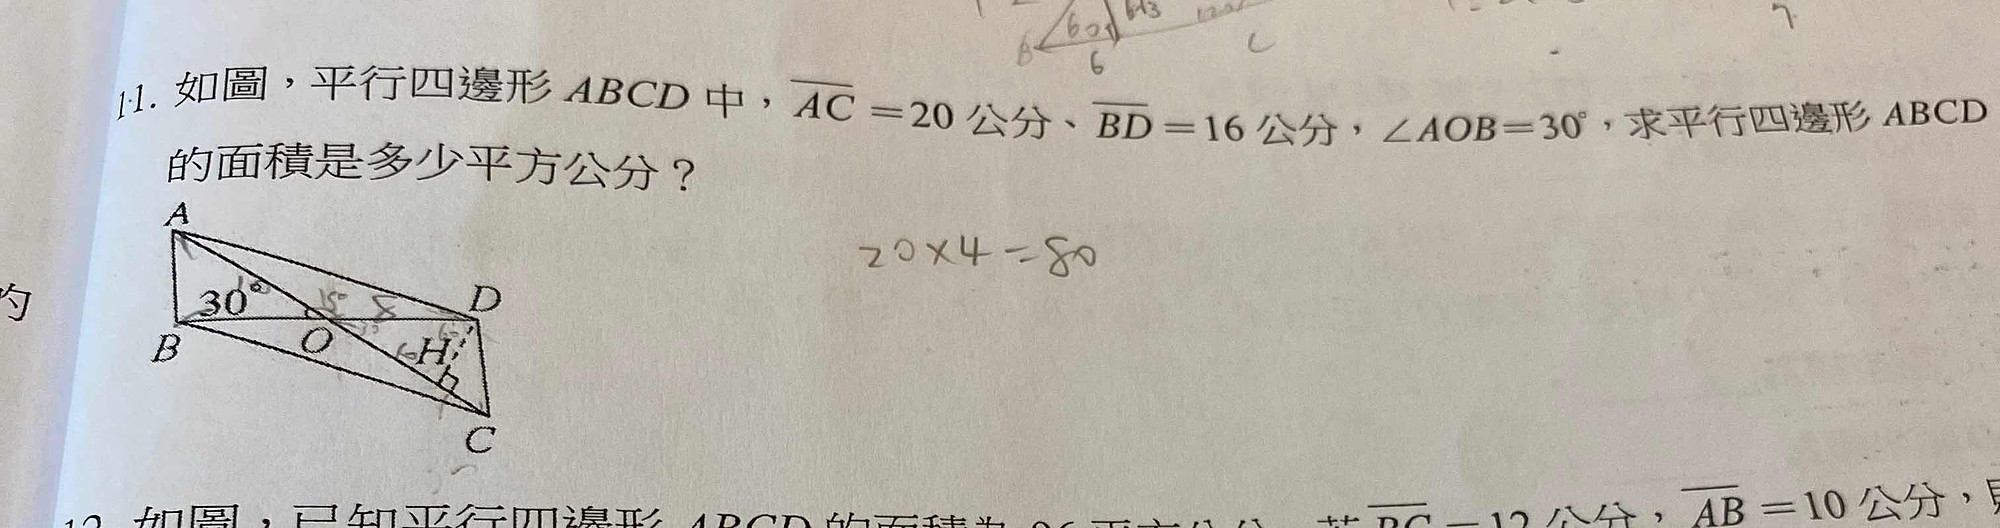 60°
6√3
B
6
C
7.
11. 如圖，平行四邊形 ABCD 中，AC＝20 公分、BD＝16 公分，∠AOB＝30°，求平行四邊形 ABCD
的面積是多少平方公分？
20×4＝80
A
30°
8
D
B
O
H
C
的
12. 如圖，已知平行四邊形 ABCD 的面積為 96 平方公分，若 BC＝12 公分，AB＝10 公分，則